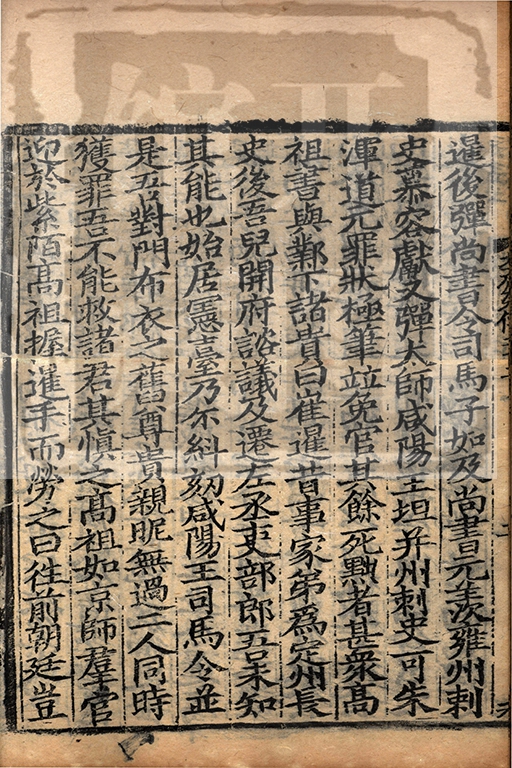 暹後彈尚書令司馬子如及尚書元羡雍州刺
史慕容獻又彈太師咸陽王坦并州刺史可朱
渾道元罪狀極筆竝免官其餘死黜者甚衆高
祖書與鄴下諸貴曰崔暹昔事家弟爲定州長
史後吾兒開府諮議及遷左丞吏部郎吾未知
其能也始居憲臺乃尒糾劾咸陽王司馬令並
是吾對門布衣之舊尊貴親昵無過二人同時
獲罪吾不能救諸君其慎之高祖如京師羣官
迎於紫陌高祖握暹手而勞之曰往前朝廷豈